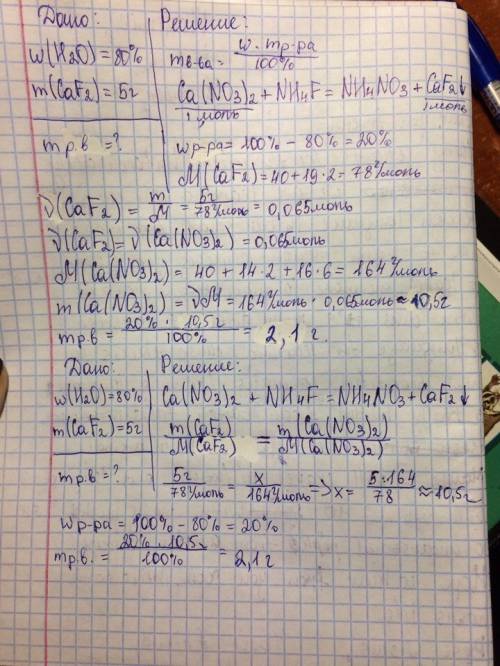 Дано: Решение:
w(H2O) = 80% mв-ва = w · mр-ра / 100%
m(CaF2) = 5г Ca(NO3)2 + NH4F = NH4NO3 + CaF2↓
1 моль 1 моль
mр.в = ? wр-ра = 100% - 80% = 20%
M(CaF2) = 40 + 19 · 2 = 78 г/моль
ν(CaF2) = m/M = 5г / 78 г/моль = 0,065 моль
ν(CaF2) = ν(Ca(NO3)2) = 0,065 моль
M(Ca(NO3)2) = 40 + 14 · 2 + 16 · 6 = 164 г/моль
m(Ca(NO3)2) = νM = 164 г/моль · 0,065 моль ≈ 10,5г
mр.в = 20% · 10,5г / 100% = 2,1 г.
Дано: Решение:
w(H2O) = 80% Ca(NO3)2 + NH4F = NH4NO3 + CaF2↓
m(CaF2) = 5г m(CaF2) / M(CaF2) = m(Ca(NO3)2) / M(Ca(NO3)2)
mр.в = ? 5г / 78 г/моль = x / 164 г/моль => x = 5·164 / 78 ≈ 10,5г
wр-ра = 100% - 80% = 20%
mр.в. = 20% · 10,5г / 100% = 2,1 г